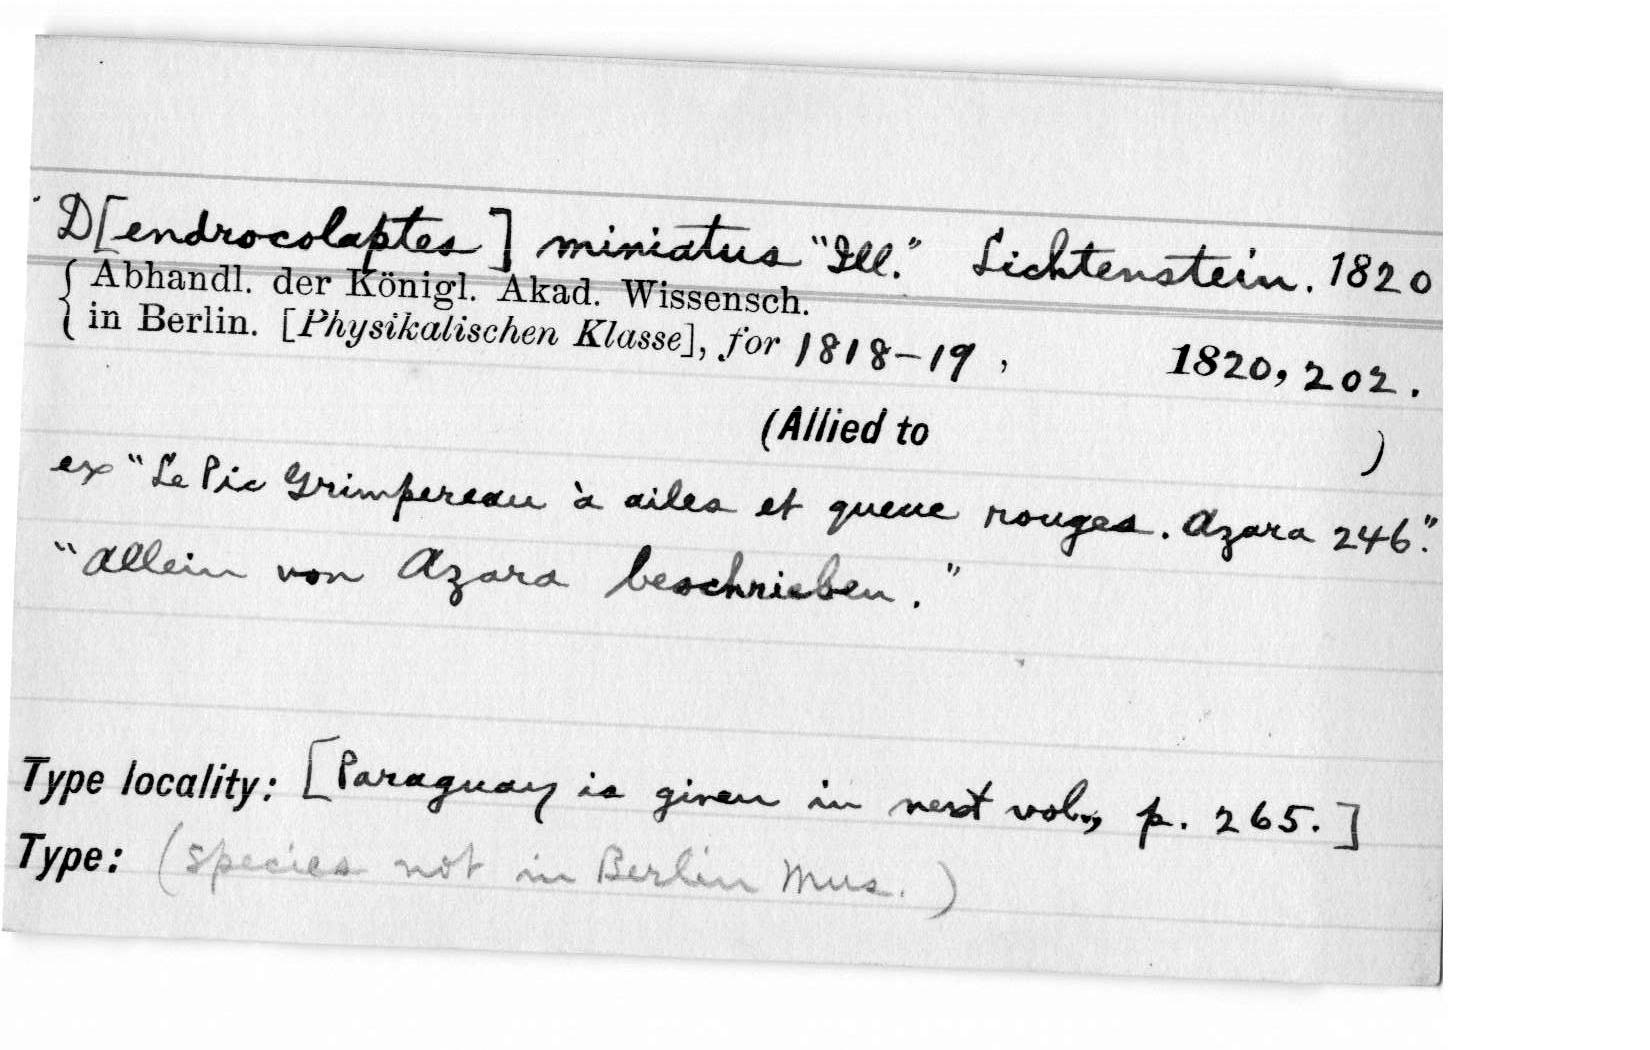 D[endrocolaptes] miniatus "Ill." Lichtenstein. 1820
Abhandl. der Königl. Akad. Wissensch.
in Berlin. [Physikalischen Klasse], for 1818-19, 1820, 202.
(Allied to )
ex "Le Pic Grimpereau à ailes et queue rouges. Azara 246."
"Allein von Azara beschrieben."
Type locality: [Paraguay is given in next vol., p. 265.]
Type: (species not in Berlin Mus.)